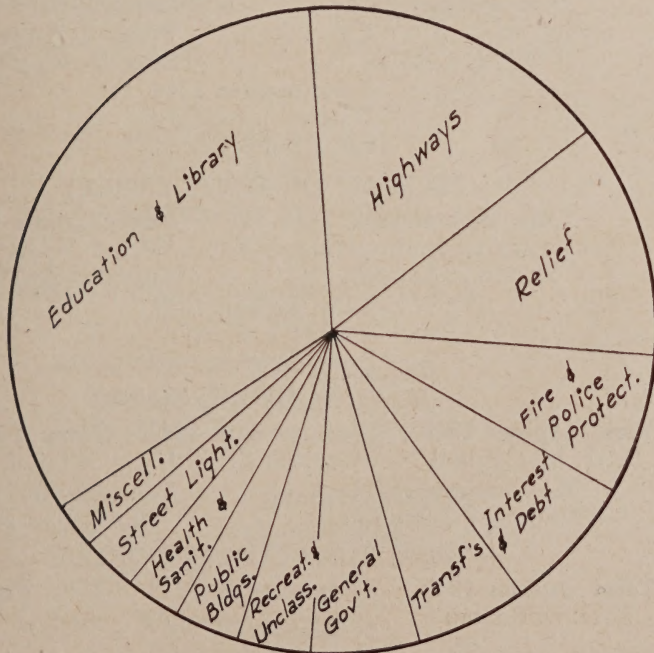 Education & Library
Highways
Relief
Fire &
Police
Protect.
Interest
& Debt
Transf's
General
Gov't.
Recreat. &
Unclass.
Public
Bldgs.
Health &
Sanit.
Street Light.
Miscell.